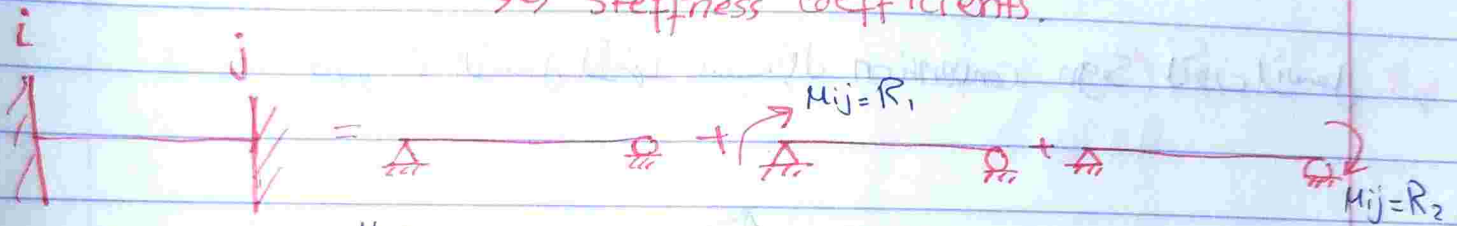 Steffness Coefficients.
i
j
= + Mij=R₁ +
Mij=R₂